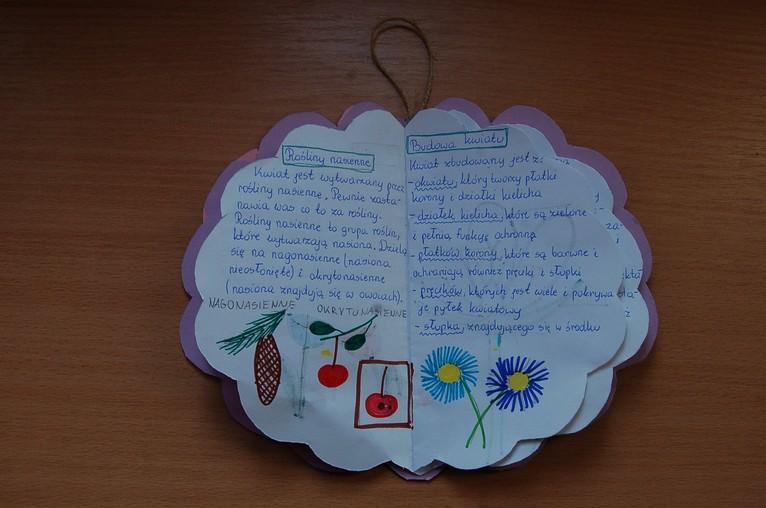 Rośliny nasienne
Kwiat jest wytwarzany przez
rośliny nasienne. Pewnie zasta-
nawia was co to za rośliny.
Rośliny nasienne to grupa roślin,
które wytwarzają nasiona. Dzielą
się na nagonasienne (nasiona
nieosłonięte) i okrytonasienne
(nasiona znajdują się w owocach).
NAGONASIENNE OKRYTONASIENNE
Budowa kwiatu
Kwiat zbudowany jest z:
- okwiatu, który tworzy płatki
korony i działki kielicha
- działek kielicha, które są zielone
i pełnią funkcję ochronną
- płatków korony, które są barwne i
ochraniają również pręciki i słupki
- pręcików, których jest wiele i pokrywa
je pyłek kwiatowy
- słupka, znajdującego się w środku